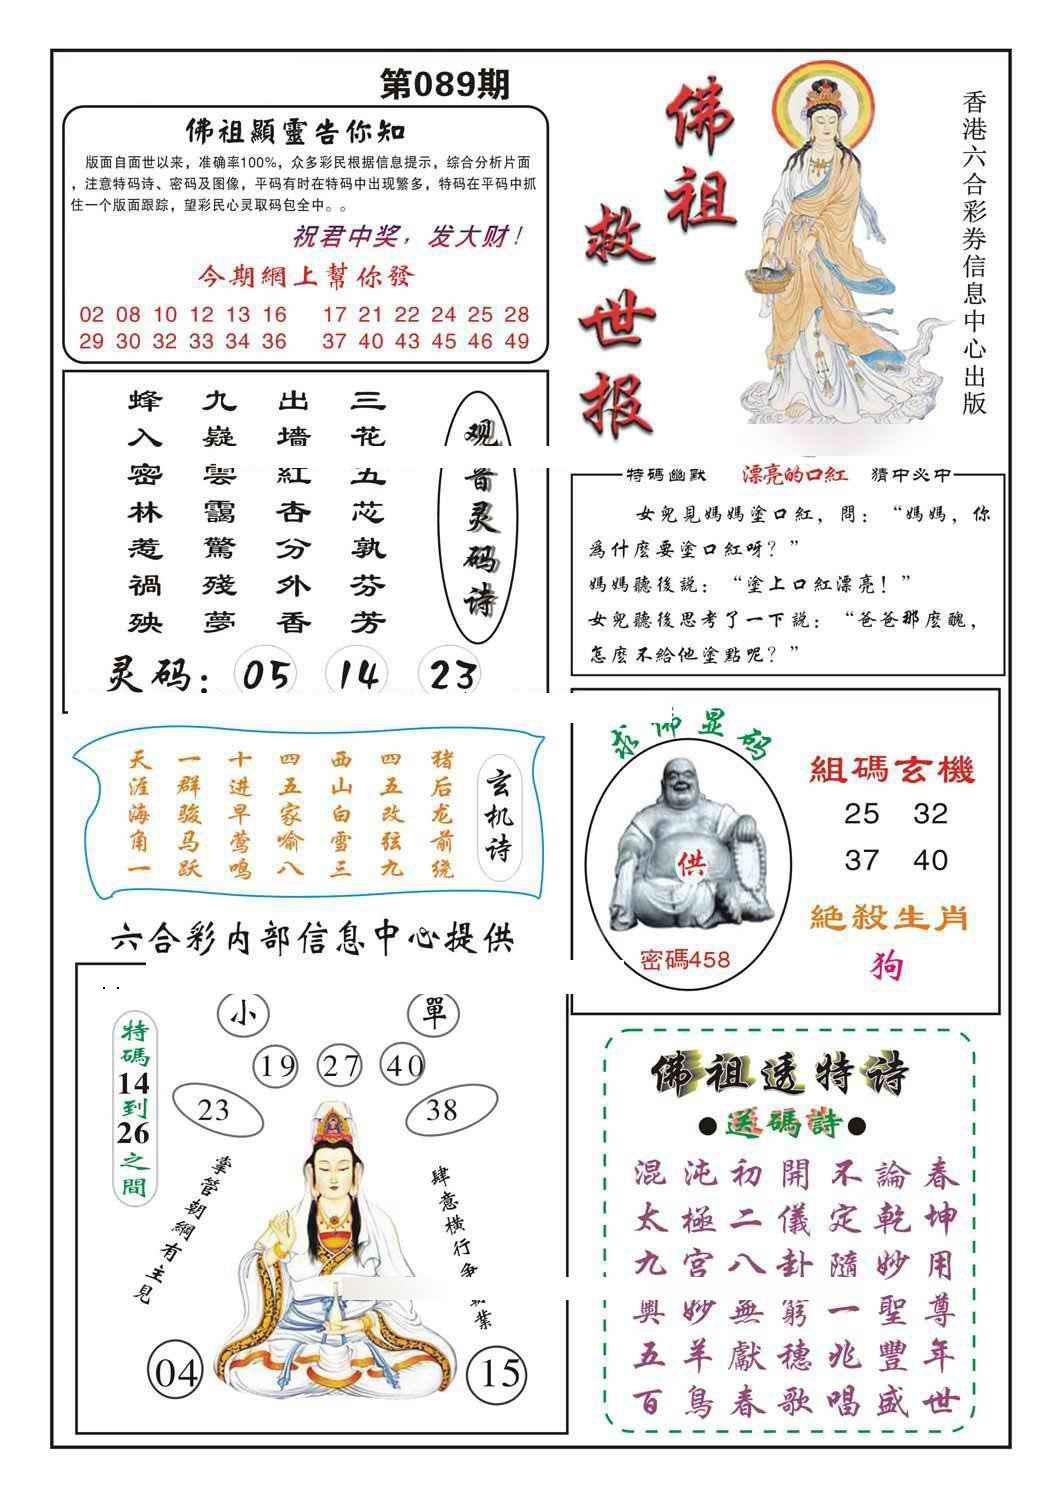 第089期
佛祖顯靈告你知
版面自面世以来，准确率100%，众多彩民根据信息提示，综合分析片面
，注意特码诗、密码及图像，平码有时在特码中出现繁多，特码在平码中抓
住一个版面跟踪，望彩民心灵取码包全中。。
祝君中奖，发大财！
今期網上幫你發
02 08 10 12 13 16 17 21 22 24 25 28
29 30 32 33 34 36 37 40 43 45 46 49
佛祖
救世报
香港六合彩券信息中心出版
观音灵码诗
三花五芯孰芬芳
出墙紅杏分外香
九嶷雲靄驚殘夢
蜂入密林惹禍殃
灵码：05 14 23
特碼幽默 漂亮的口紅 猜中必中
女兒見媽媽塗口紅，問：“媽媽，你
爲什麽要塗口紅呀？”
媽媽聽後説：“塗上口紅漂亮！”
女兒聽後思考了一下説：“爸爸那麽醜，
怎麽不給他塗點呢？”
玄机诗
猪后龙前绕
四五改弦九
西山白雪三
四五家喻八
十进早莺鸣
一群骏马跃
天涯海角一
求佛显码
供
密碼458
組碼玄機
25 32
37 40
絕殺生肖
狗
六合彩内部信息中心提供
特碼14到26之間
小 單
19 27 40
23 38
掌管朝綱有主見
肆意横行争業
04 15
佛祖透特诗
●送碼詩●
混沌初開不論春
太極二儀定乾坤
九宫八卦隨妙用
興妙無窮一聖尊
五羊獻穗兆豐年
百鳥春歌唱盛世